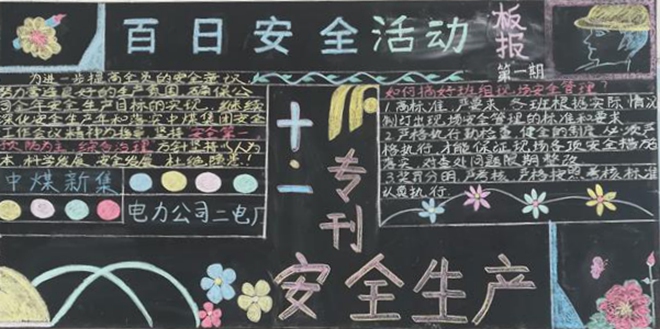 百日安全活动
板报
第一期
为进一步提高全员的安全意识,
努力营造良好的生产氛围,确保公
司全年安全生产目标的实现,继续
深化安全生产年和落实中煤集团安全
工作会议精神为指导,坚持"安全第一
预防为主,综合治理"方针坚持"以人为
本,科学发展,安全发展,杜绝隐患!
中煤新集
电力公司二电厂
十·一
专刊
如何搞好班组现场安全管理?
1.高标准、严要求、各班根据实际情况
制订出现场安全管理的标准和要求
2.严格执行勤检查,健全的制度,必须严
格执行,才能保证现场各项安全措施
落实,对查处问题限期整改
3.奖罚分明,严考核,严格按照考核标准
认真执行.
安全生产